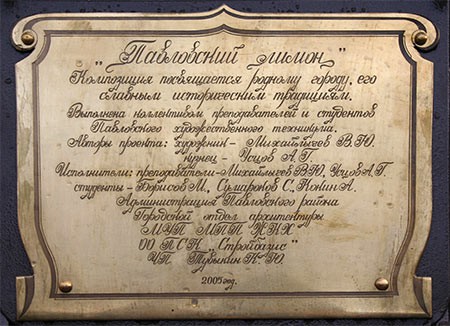 "Павловский лимон"
Композиция посвящается родному городу, его
славным историческим традициям.
Выполнена коллективом преподавателей и студентов
Павловского художественного техникума.
Авторы проекта: художник - Михайлычев В.Ю.
кузнец - Усцов А.Г.
Исполнители: преподаватели - Михайлычев В.Ю, Усцов А.Г.
студенты - Борисов М, Сумароков С, Конин А.
Администрация Павловского района
Городской отдел архитектуры
МУП МПП ЖКХ
ОО ПСК "Стройбазис"
ИП Тубыкин К.Ю.
2005 год.